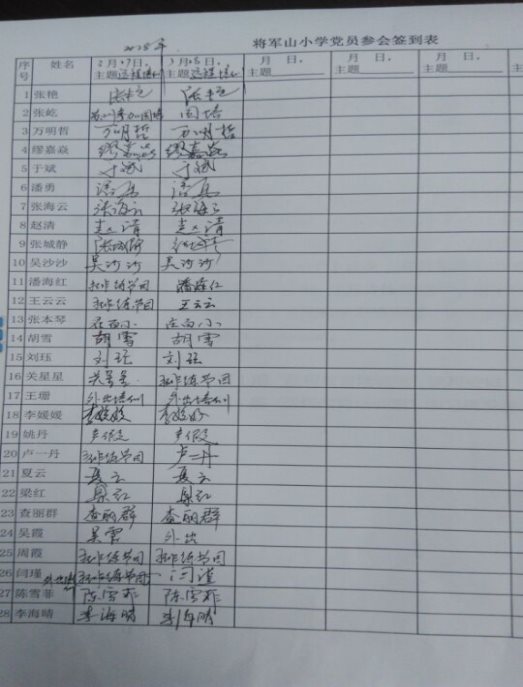 将军山小学党员参会签到表
序号 姓名 月 日, 主题 月 日, 主题 月 日, 主题 月 日, 主题 月 日, 主题 月 日, 主题
1 张艳 张艳 张艳
2 张屹
3 万明哲 万明哲 万明哲
4 缪嘉焱 缪嘉焱 缪嘉焱
5 于斌 于斌 于斌
6 潘勇 潘勇 潘勇
7 张海云 张海云 张海云
8 赵清 赵清 赵清
9 张城静 张城静
10 吴沙沙 吴沙沙 吴沙沙
11 潘海红 潘海红
12 王云云 王云云
13 张本琴
14 胡雪 胡雪 胡雪
15 刘珏 刘珏 刘珏
16 关星星 关星星
17 王珊 外出培训 外出培训
18 李媛媛 李媛媛 李媛媛
19 姚丹 产假 产假
20 卢一丹 卢一丹
21 夏云 夏云 夏云
22 梁红 梁红 梁红
23 查丽群 查丽群 查丽群
24 吴霞 吴霞 外出
25 周霞
26 闫瑾 闫瑾
27 陈雪菲 陈雪菲 陈雪菲
28 李海晴 李海晴 李海晴